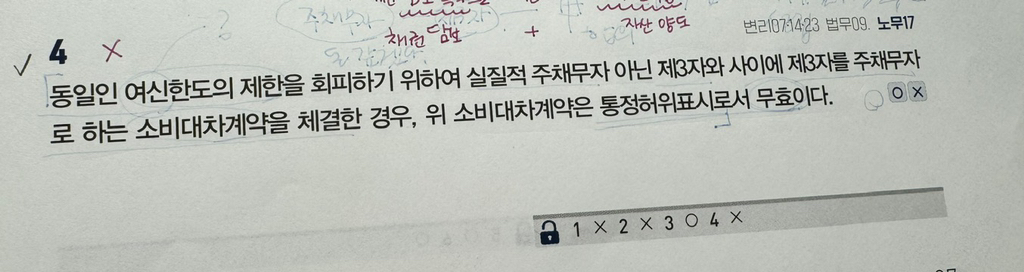 주채무자
채권 담보
+
자산 양도
변리07·14·23 법무09. 노무17
4 X
동일인 여신한도의 제한을 회피하기 위하여 실질적 주채무자 아닌 제3자와 사이에 제3자를 주채무자
로 하는 소비대차계약을 체결한 경우, 위 소비대차계약은 통정허위표시로서 무효이다. O X
1 X 2 X 3 O 4 X